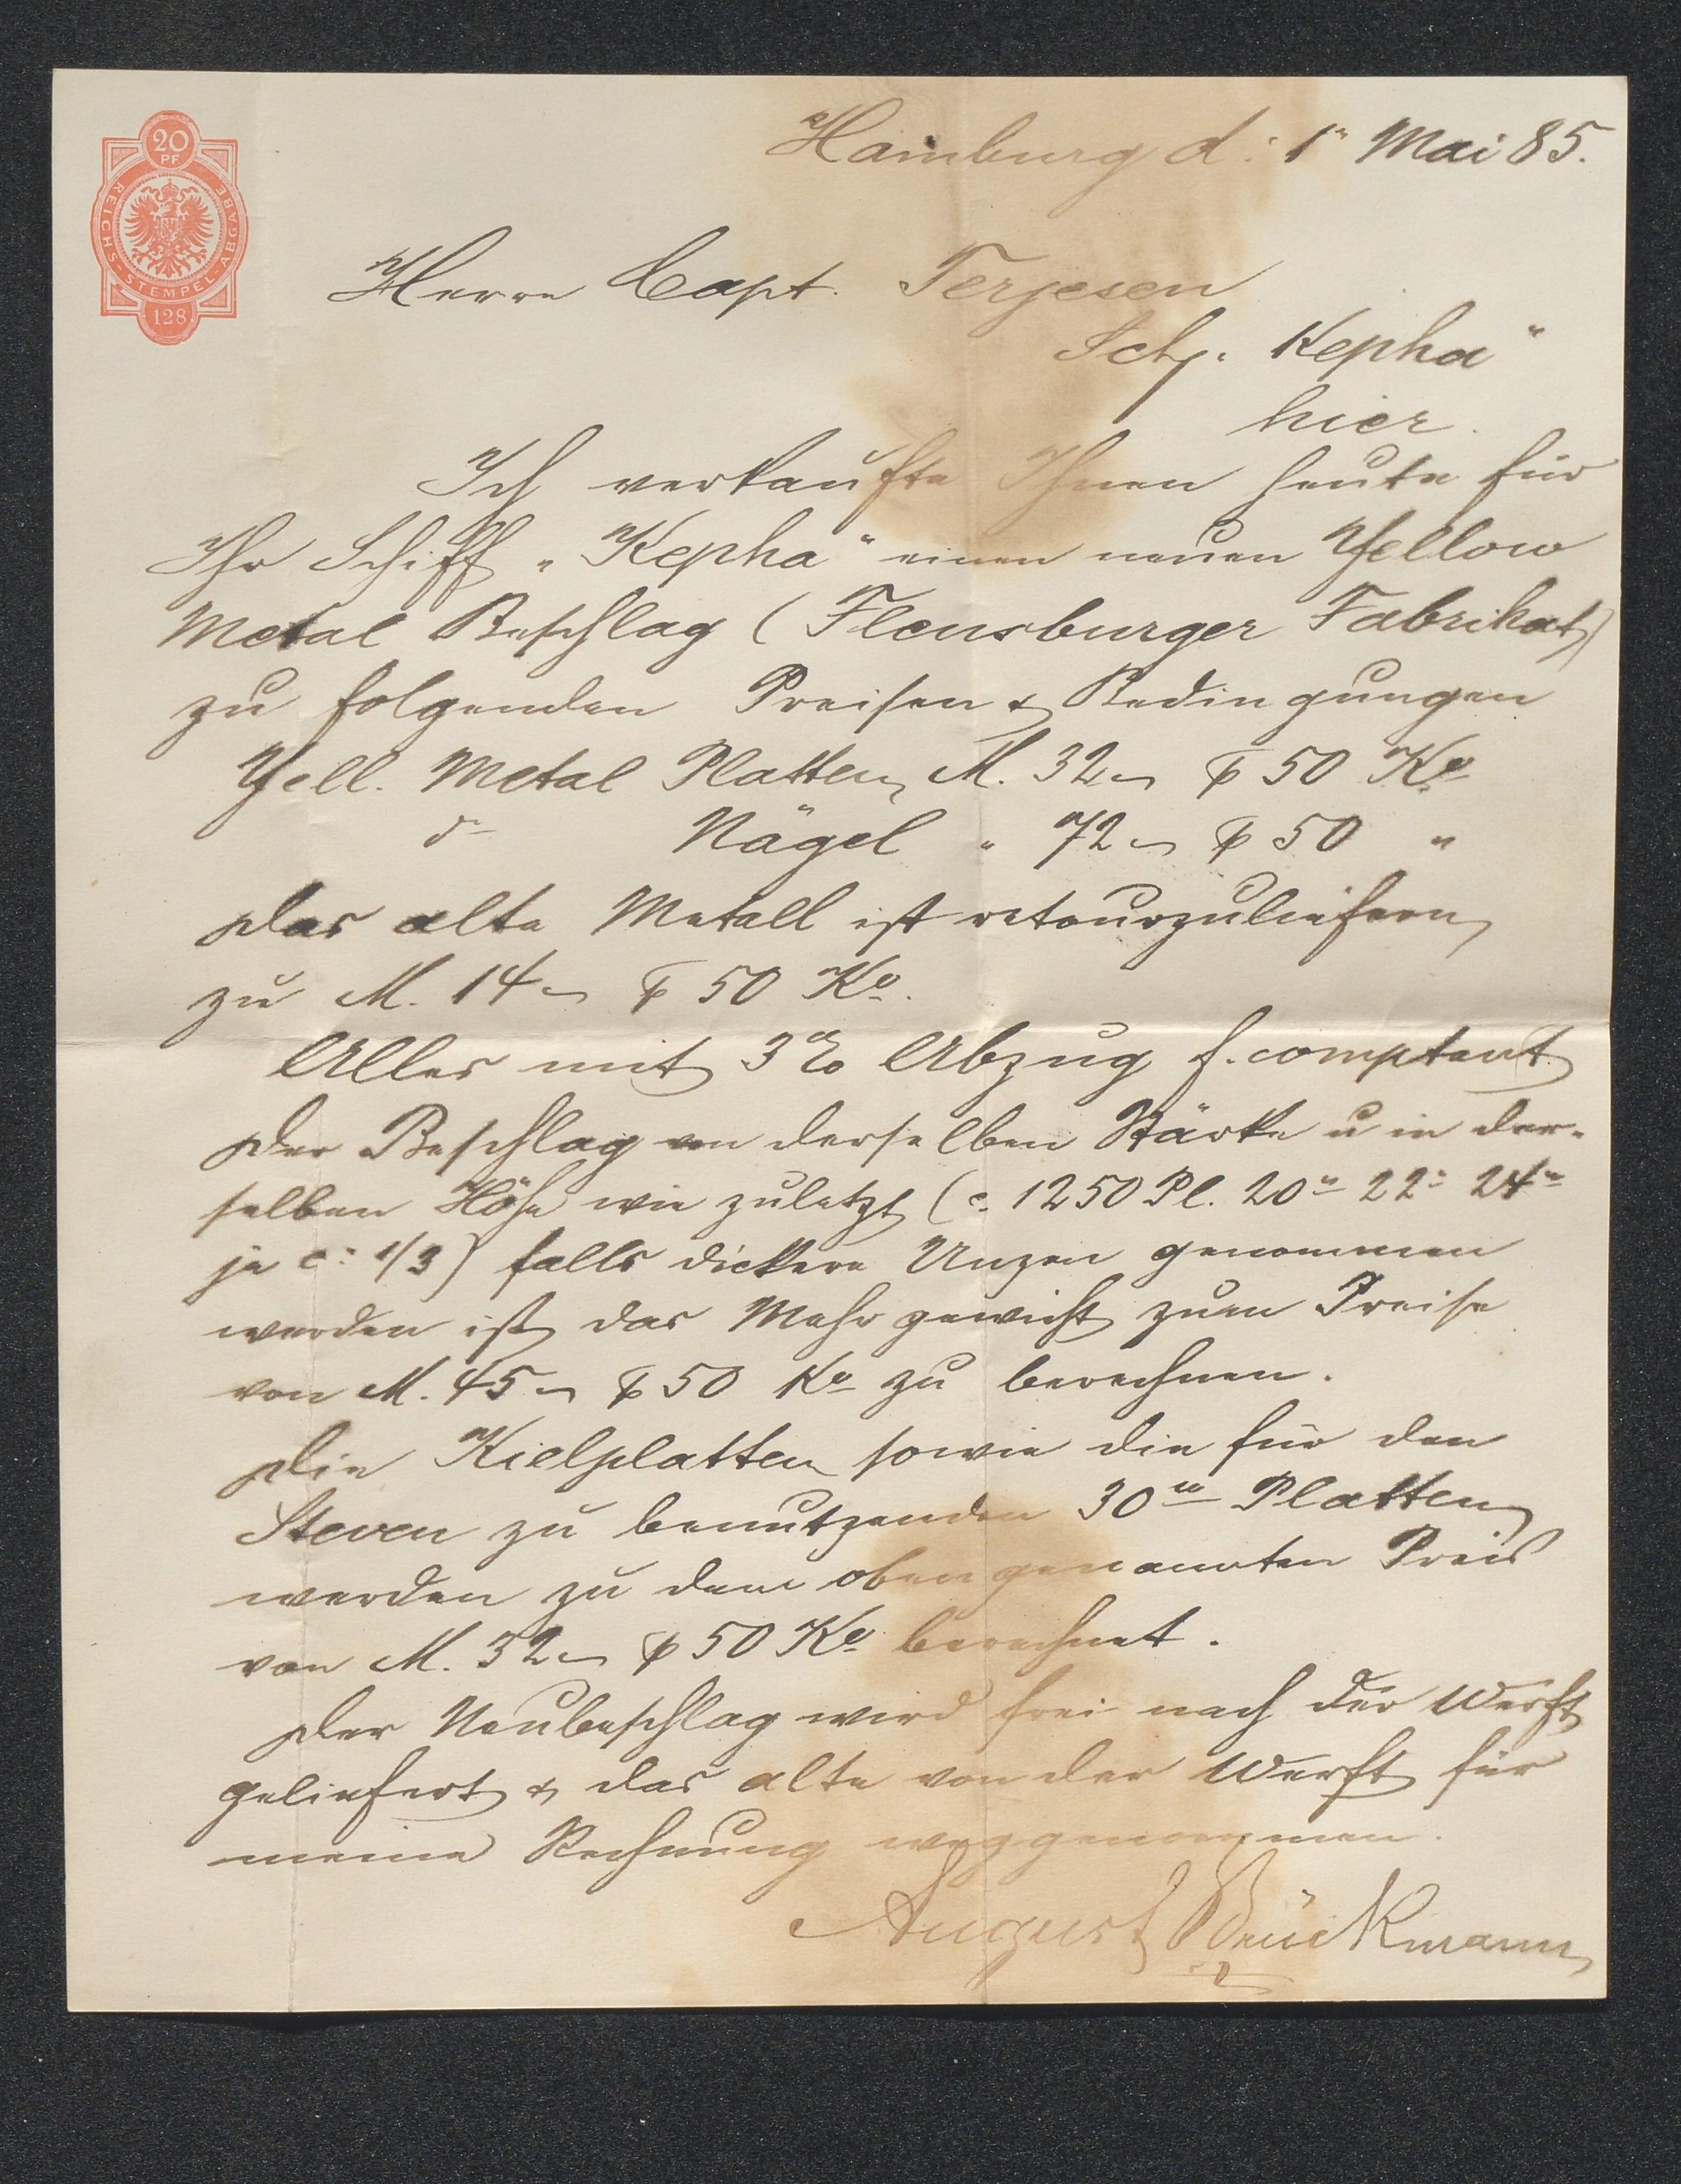 20
PF
REICHS-STEMPEL-ABGABE
128
Hamburg d: 1" Mai 85.
Herrn Capt. Terjesen
Sch. Kepha"
hier.
Ich verkaufte Ihnen heute für
Ihr Schiff „Kepha" einen neuen Yellow
Metal Beschlag (Flensburger Fabrikat)
zu folgenden Preisen & Bedingungen
Yell. Metal Platten M. 32 ₰ 50 Ko
do Nägel " 72 ₰ 50 "
Das alte Metall ist retourzuliefern
zu M. 14 ₰ 50 Ko.
Alles mit 3% Abzug f. comptant
Der Beschlag von derselben Stärke u in der-
selben Höhe wie zuletzt (c. 1250 Pl. 20" 22" 24"
je c: 1/3) falls dickere Unzen genommen
werden ist das Mehrgewicht zum Preise
von M. 45 ₰ 50 Ko zu berechnen.
Die Kielplatten sowie die für den
Steven zu benutzenden 30" Platten
werden zu dem obengenannten Preis
von M. 32 ₰ 50 Ko berechnet.
Der Neubeschlag wird frei nach der Werft
geliefert & das alte von der Werft für
meine Rechnung weggenommen.
August Brückmann